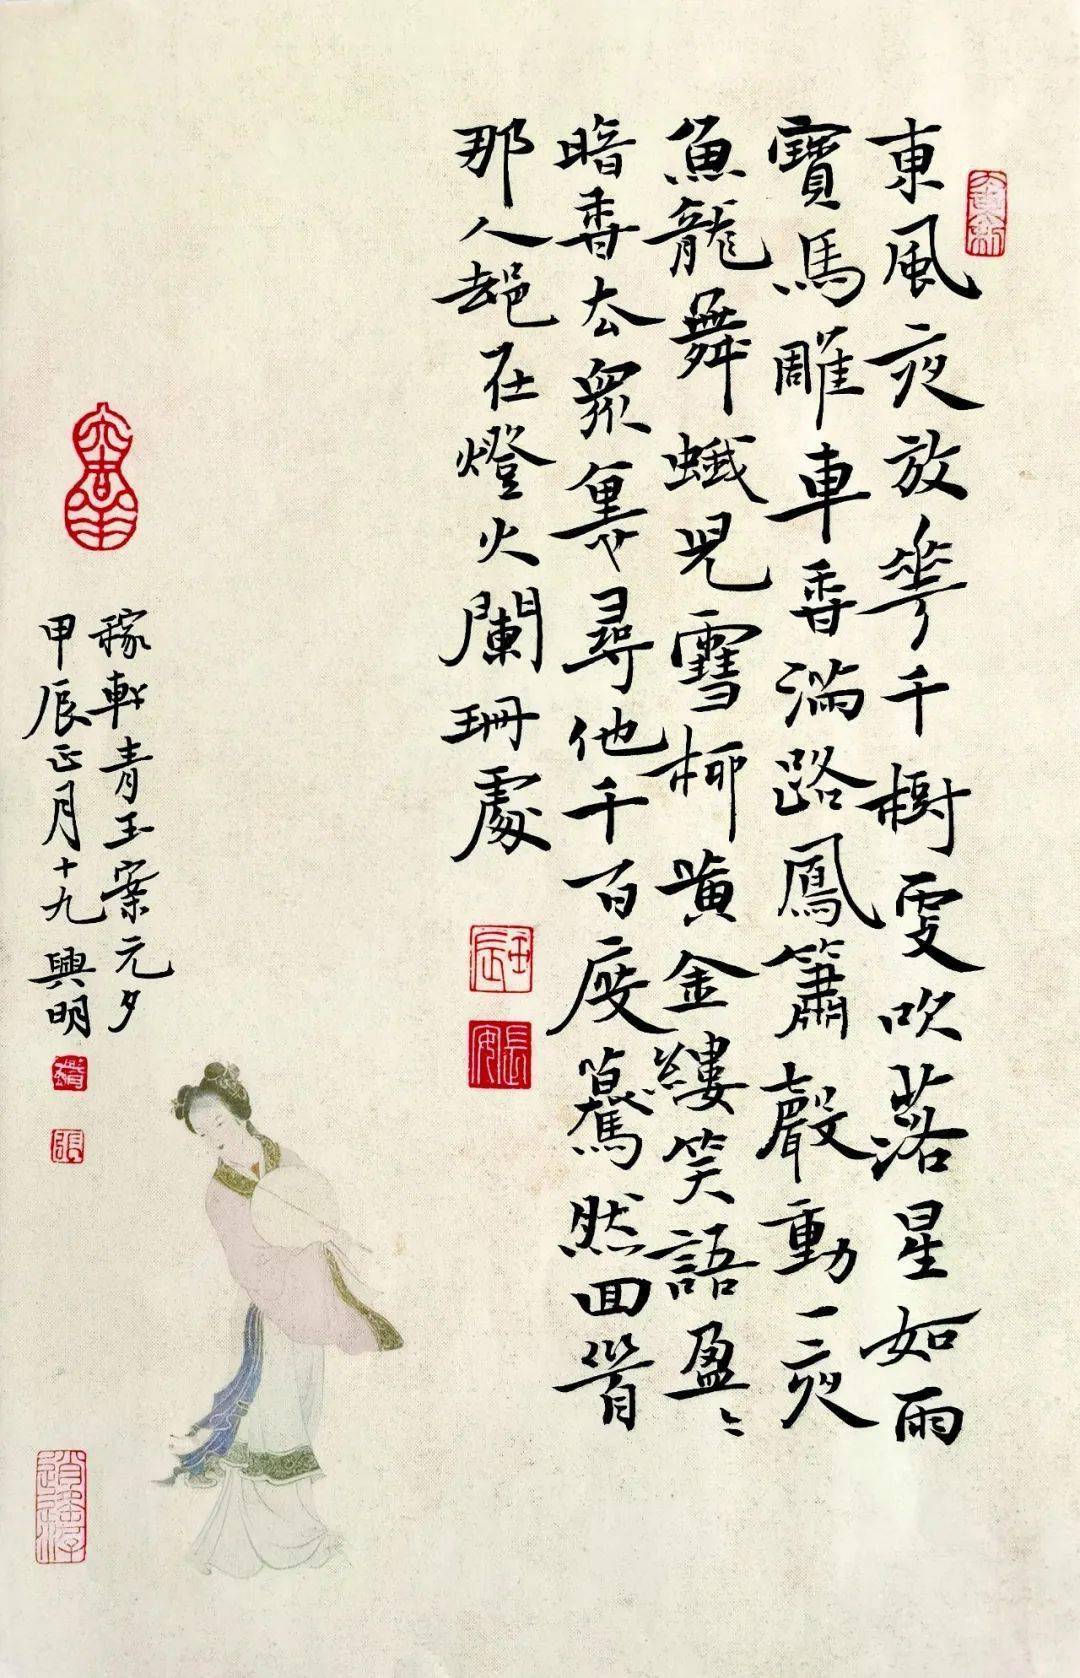 東風夜放華千樹更吹落星如雨
寶馬雕車香滿路鳳簫聲動一夜
魚龍舞蛾兒雪柳黃金縷笑語盈〻
暗香去眾裏尋他千百度驀然回首
那人却在燈火闌珊處
稼軒青玉案元夕
甲辰正月十九興明
大吉羊
張
逍遙游